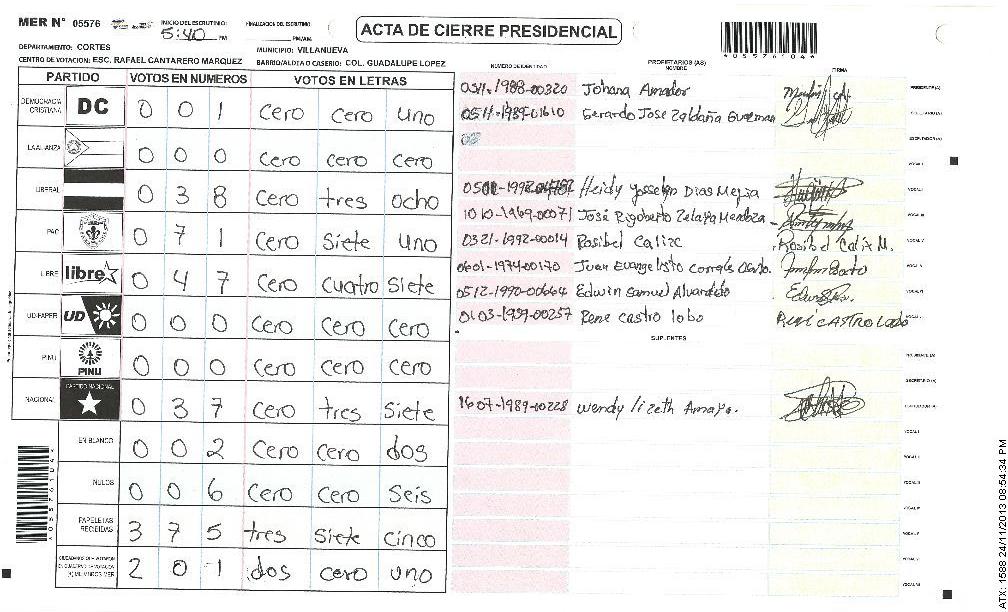 MER N° 05576
INICIO DEL ESCRUTINIO: 5:40 PM
FINALIZACION DEL ESCRUTINIO: PM/AM
ACTA DE CIERRE PRESIDENCIAL
*05576104*
DEPARTAMENTO: CORTES
MUNICIPIO: VILLANUEVA
CENTRO DE VOTACION: ESC. RAFAEL CANTARERO MARQUEZ
BARRIO/ALDEA O CASERIO: COL. GUADALUPE LOPEZ
PARTIDO VOTOS EN NUMEROS VOTOS EN LETRAS
DEMOCRACIA CRISTIANA DC 0 0 1 cero cero uno
LA ALIANZA 0 0 0 cero cero cero
LIBERAL 0 3 8 cero tres ocho
PAC 0 7 1 cero siete uno
LIBRE libre 0 4 7 cero cuatro siete
UD-FAPER UD 0 0 0 cero cero cero
PINU PINU 0 0 0 cero cero cero
NACIONAL PARTIDO NACIONAL 0 3 7 cero tres siete
EN BLANCO 0 0 2 cero cero dos
NULOS 0 0 6 cero cero seis
PAPELETAS RECIBIDAS 3 7 5 tres siete cinco
2 0 1 dos cero uno
*05576104*
NUMERO DE IDENTIDAD PROPIETARIOS (AS) NOMBRE FIRMA
0511-1988-00320 Johana Amador PRESIDENTE (A)
0511-1989-01610 Gerardo Jose Zaldaña Guzman SECRETARIO (A)
ESCRUTADOR (A)
VOCAL I
Heidy Josselyn Dias Mejia
1010-1969-00071 José Rigoberto Zelaya Mendoza
0321-1992-00014 Rosibel Calix Rosibel Calix M.
0601-1974-00170 Juan Evangelisto
0512-1990-00664 Edwin Samuel Alvarado
0103-1959-00257 Rene Castro lobo RENE CASTRO LOBO
SUPLENTES
PRESIDENTE (A)
SECRETARIO (A)
1607-1989-00228 Wendy lizeth Amaya. ESCRUTADOR (A)
VOCAL I
VOCAL II
VOCAL III
VOCAL IV
VOCAL V
ATX: 1588 24/11/2013 08:54:34 PM